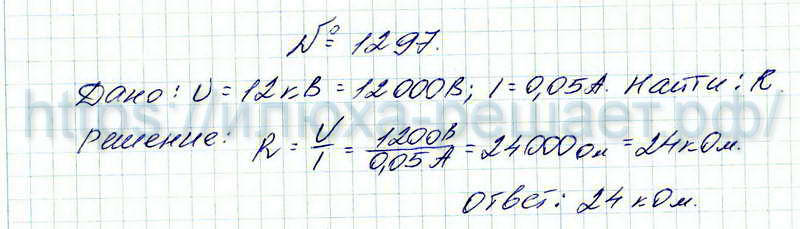 № 1297.
Дано: U = 12кВ = 12000В; I = 0,05А. Найти: R.
https://илюха-решает.рф/
Решение: R = U/I = 1200В/0,05А = 24000Ом = 24кОм.
Ответ: 24 кОм.